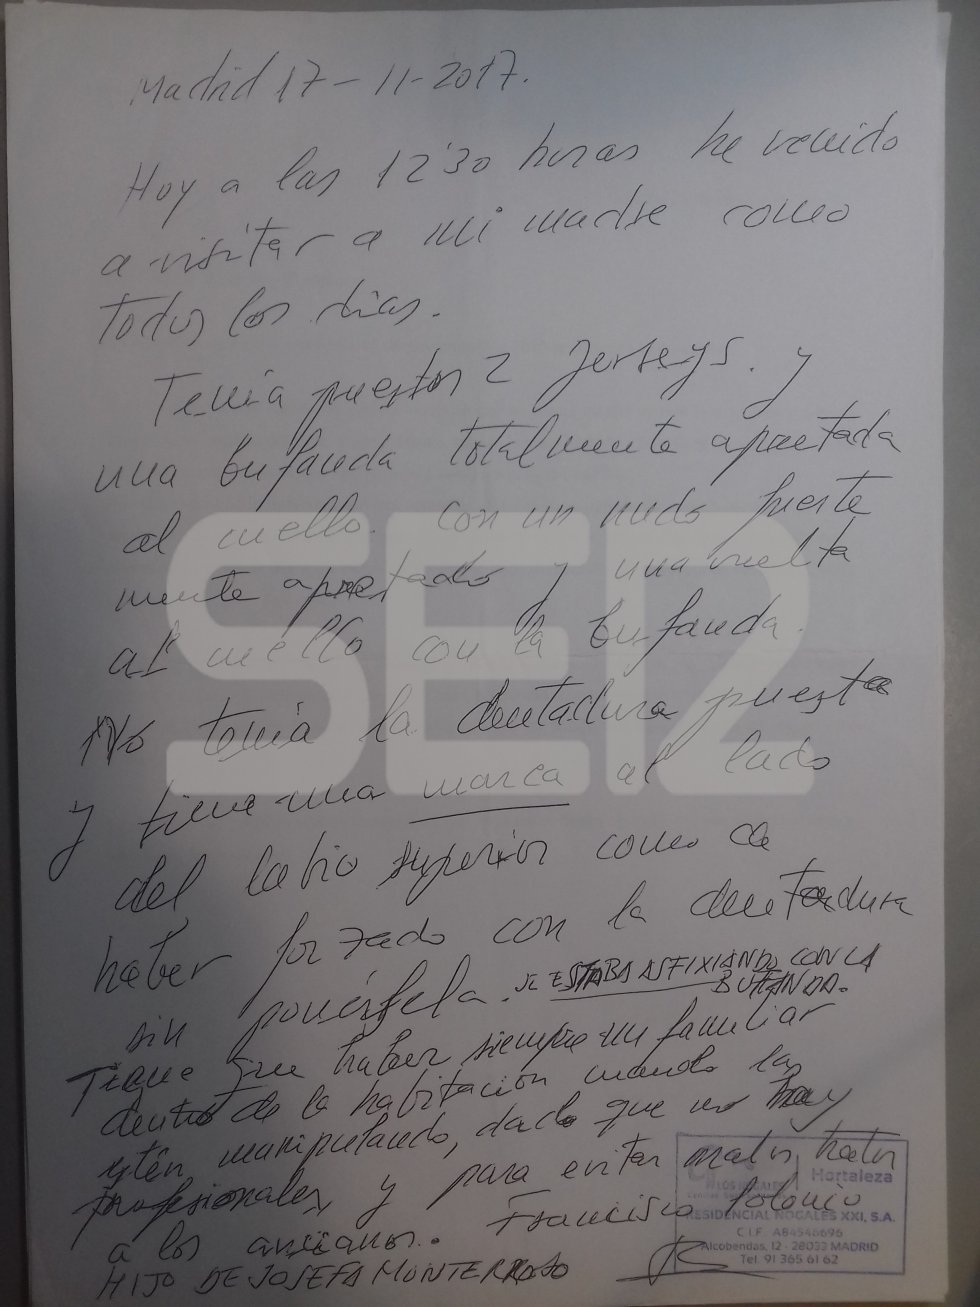 Madrid 17-11-2017.
Hoy a las 12'30 horas he venido
a visitar a mi madre como
todos los días.
Tenía puestos 2 Jerseys. y
una bufanda totalmente apretada
al cuello. con un nudo fuerte
mente apretado y una vuelta
al cuello con la bufanda.
No tenía la dentadura puesta
y tiene una marca al lado
del labio superior como de
haber forzado con la dentadura
sin ponérsela. SE ESTABA ASFIXIANDO CON LA
BUFANDA.
Tiene que haber siempre un familiar
dentro de la habitación cuando la
estén manipulando, dado que no hay
profesionales y para evitar malos tratos
a los ancianos. Francisco Polonio
HIJO DE JOSEFA MONTERROSO
SER
LOS NOGALES
Hortaleza
RESIDENCIAL NOGALES XXI, S.A.
C.I.F. A84546696
Alcobendas, 12 - 28033 MADRID
Tel. 91 365 61 62